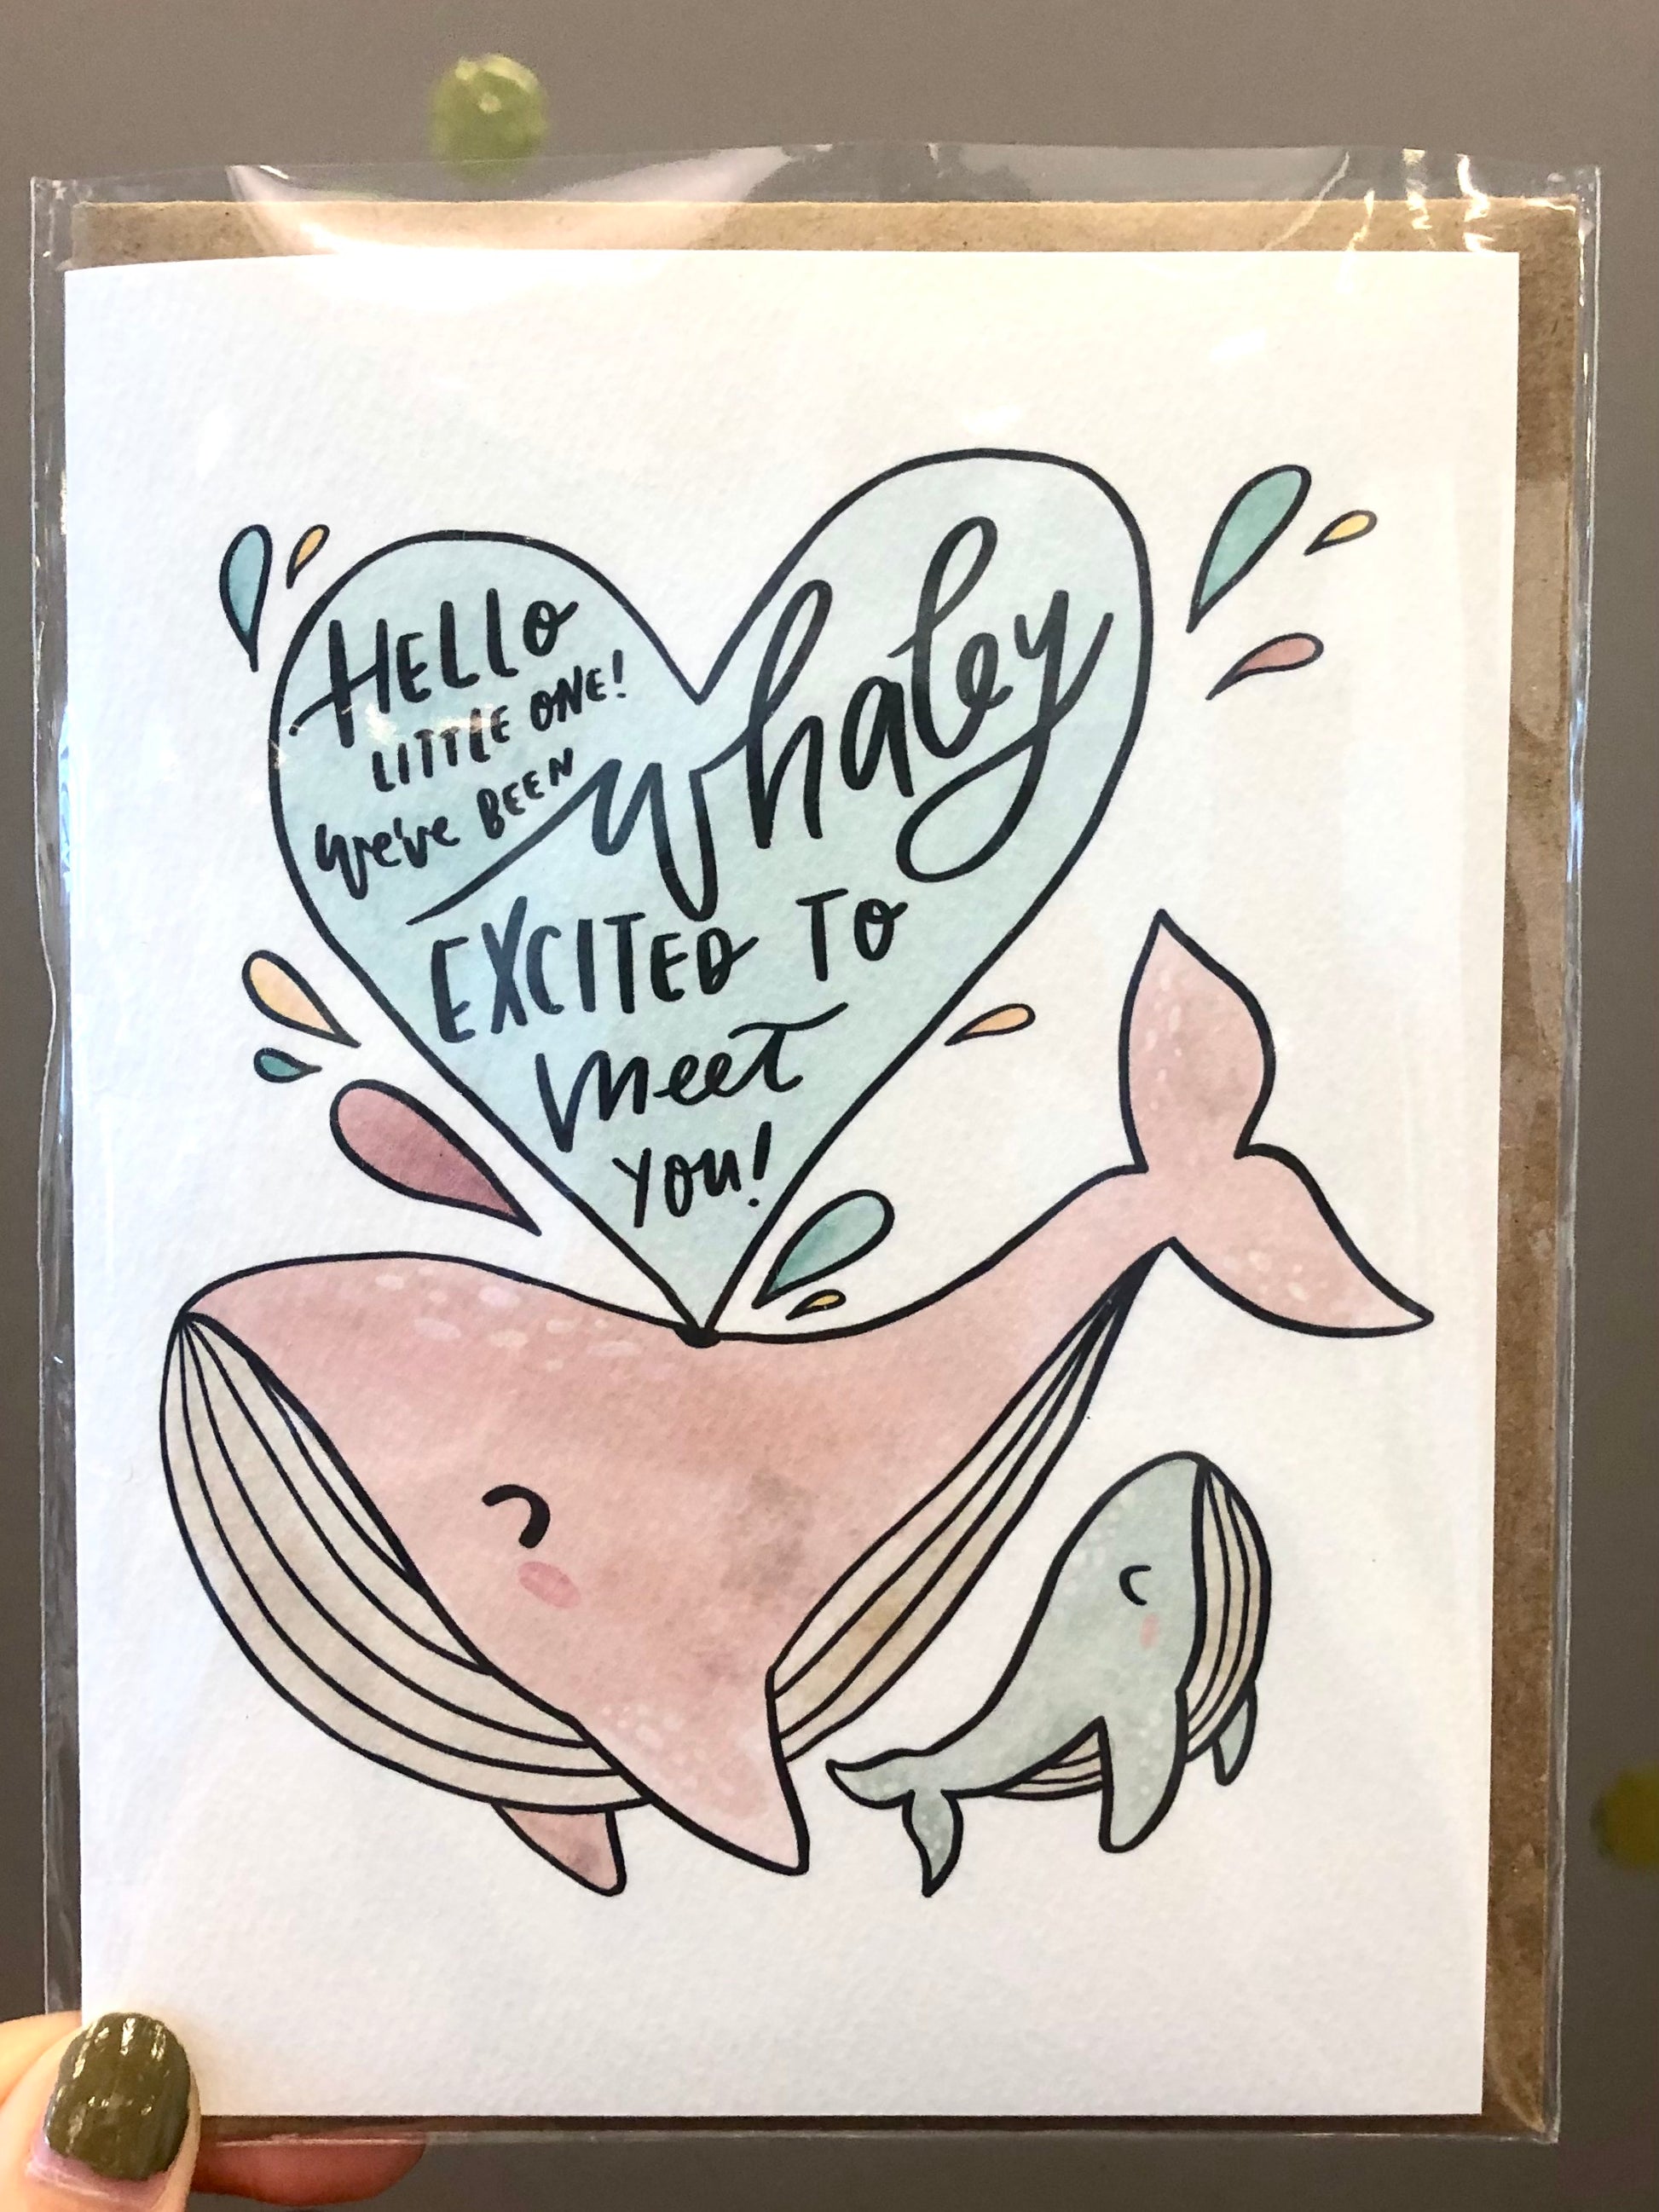 HELLO
LITTLE ONE!
we've BEEN
whaley
EXCITED TO
meet
you!